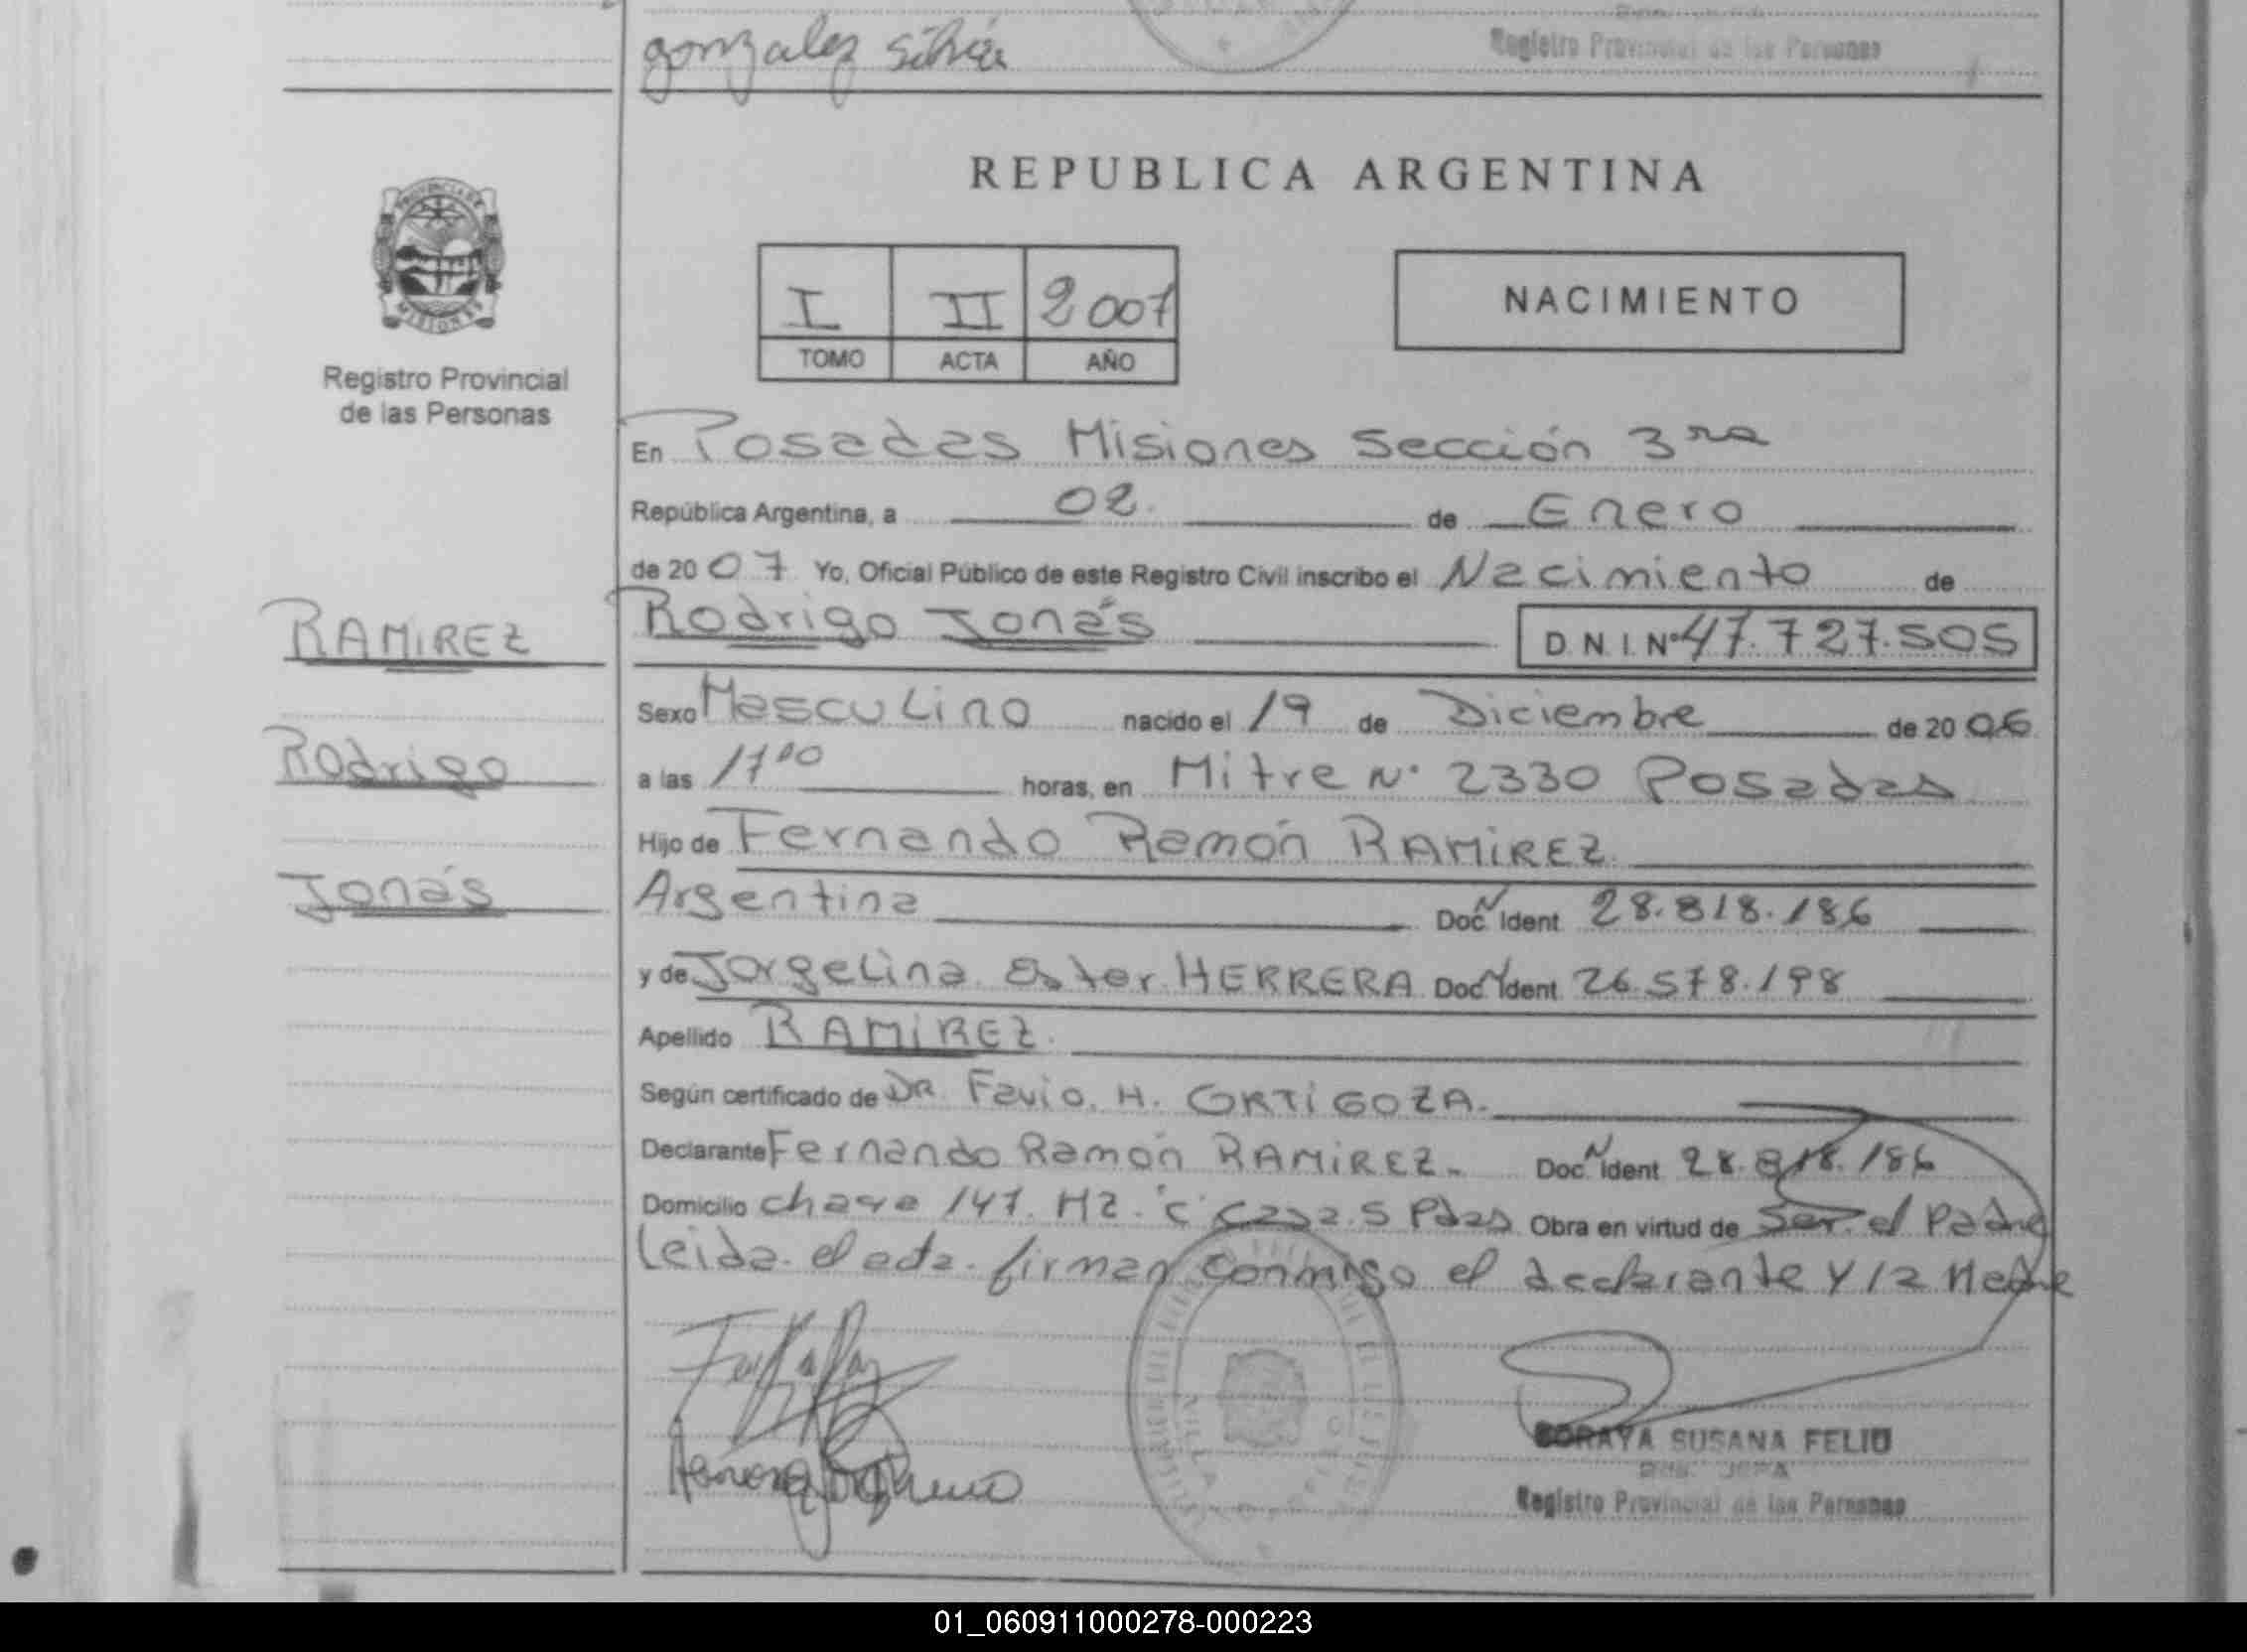 gonzalez silvia
Registro Provincial de las Personas
PROVINCIA DE
MISIONES
Registro Provincial
de las Personas
REPUBLICA ARGENTINA
I II 2007
TOMO ACTA AÑO
NACIMIENTO
En Posadas Misiones Sección 3ra
República Argentina, a 02 de Enero
de 2007 Yo, Oficial Público de este Registro Civil inscribo el Nacimiento de
RAMIREZ
Rodrigo Jonás D.N.I. Nº 47.727.505
Sexo Masculino nacido el 19 de Diciembre de 2006
Rodrigo
a las 17:00 horas, en Mitre Nº 2330 Posadas
Hijo de Fernando Ramón RAMIREZ
Jonás
Argentina Doc. N Ident 28.818.186
y de Jorgelina Ester HERRERA Doc N Ident 26.578.198
Apellido RAMIREZ.
Según certificado de DR. Favio. H. ORTIGOZA.
Declarante Fernando Ramón RAMIREZ. Doc. N Ident 28.818.186
Domicilio chaca 147. MZ. "C" Casa. 5 Pdas Obra en virtud de Ser el Padre
Leida el acta. firman conmigo el declarante y la Madre
SORAYA SUSANA FELIU
JEFA
Registro Provincial de las Personas
01_060911000278-000223